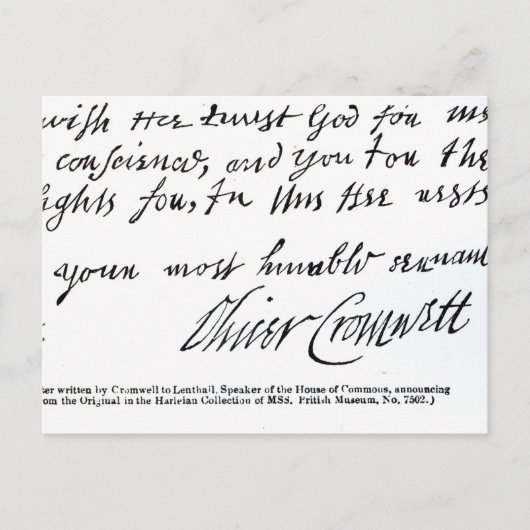 wish Hee trust God for
conscience, and you for the
fights for, In this Hee rests
your most humble servant
Oliver Cromwell
ter written by Cromwell to Lenthall, Speaker of the House of Commons, announcing
rom the Original in the Harleian Collection of MSS. Pritish Museum, No. 7502.)